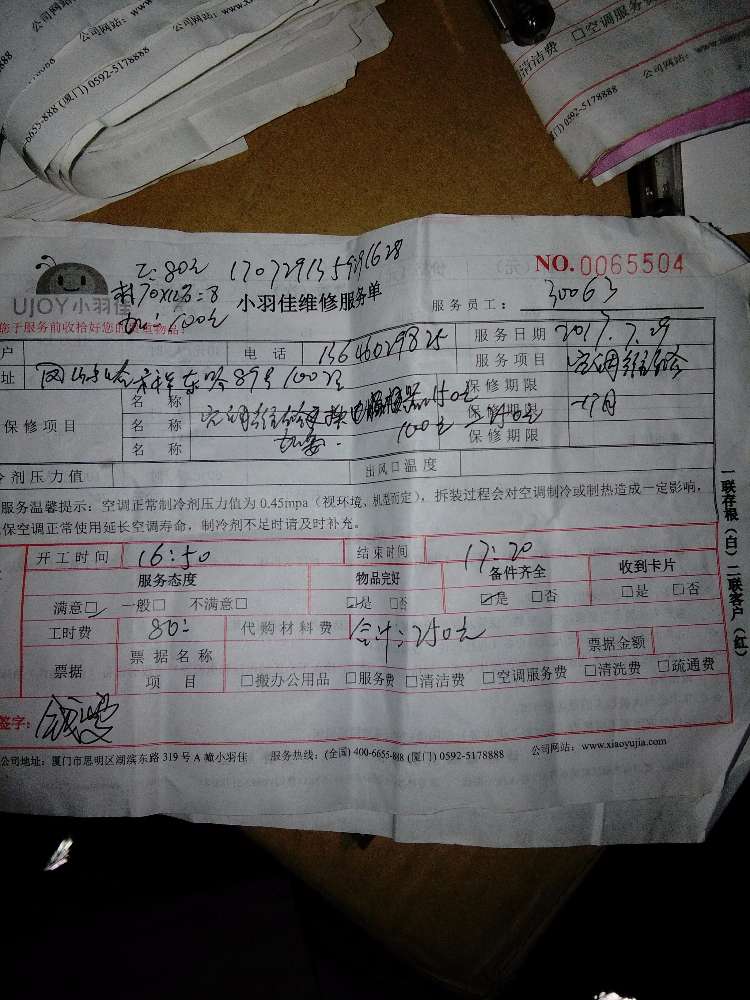 公司网站: www.
公司网站: www.x
6655-888 (厦门) 0592-5178888
清洁费 □空调服务
公司网站: www.
门) 0592-5178888
工: 80元 17072913591628
材70X
加: 100元
NO.0065504
UJOY小羽佳
小羽佳维修服务单
服务员工: 30063
您于服务前收拾好您的贵重物品!
户 电话 13646029825 服务日期 2017.7.29
址 祥东路89号1002 服务项目 空调维修
保修项目
名称 空调维修 150元 保修期限 一个月
名称 加 100元 保修期限
名称 保修期限
冷剂压力值 出风口温度
服务温馨提示: 空调正常制冷剂压力值为 0.45mpa (视环境、机型而定), 拆装过程会对空调制冷或制热造成一定影响,
保空调正常使用延长空调寿命, 制冷剂不足时请及时补充。
开工时间 16:50 结束时间 17:20
服务态度 物品完好 备件齐全 收到卡片
满意□ 一般□ 不满意□ ☑是 □否 ☑是 □否 □是 □否
工时费 80 代购材料费 合计: 250元
票据 票据名称 票据金额
项目 □搬办公用品 □服务费 □清洁费 □空调服务费 □清洗费 □疏通费
签字:
公司地址: 厦门市思明区湖滨东路 319 号 A 幢小羽佳 服务热线: (全国) 400-6655-888 (厦门) 0592-5178888 公司网站: www.xiaoyujia.com
一联存根(白) 二联客户(红)